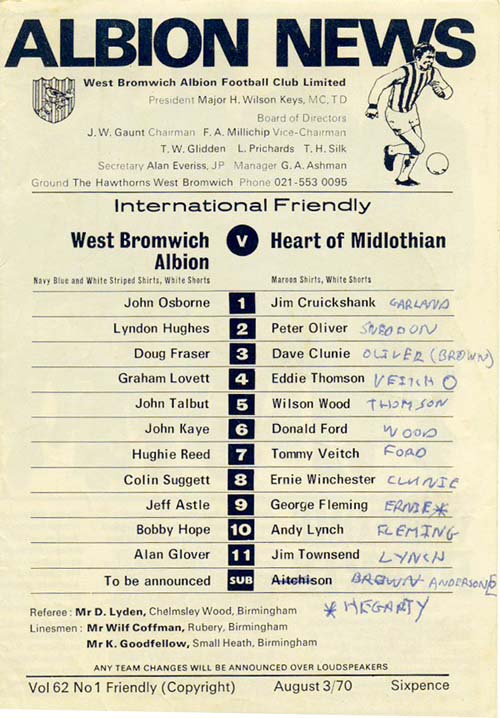 ALBION NEWS
West Bromwich Albion Football Club Limited
President Major H. Wilson Keys, MC, TD
Board of Directors
J. W. Gaunt Chairman F. A. Millichip Vice-Chairman
T. W. Glidden L. Prichards T. H. Silk
Secretary Alan Everiss, JP Manager G. A. Ashman
Ground The Hawthorns West Bromwich Phone 021-553 0095
International Friendly
West Bromwich Albion v Heart of Midlothian
Navy Blue and White Striped Shirts, White Shorts Maroon Shirts, White Shorts
John Osborne 1 Jim Cruickshank GARLAND
Lyndon Hughes 2 Peter Oliver SNEDDON
Doug Fraser 3 Dave Clunie OLIVER (BROWN)
Graham Lovett 4 Eddie Thomson VEITCH O
John Talbut 5 Wilson Wood THOMSON
John Kaye 6 Donald Ford WOOD
Hughie Reed 7 Tommy Veitch FORD
Colin Suggett 8 Ernie Winchester CLUNIE
Jeff Astle 9 George Fleming ERNIE*
Bobby Hope 10 Andy Lynch FLEMING
Alan Glover 11 Jim Townsend LYNCH
To be announced SUB Aitchison BROWN ANDERSON
*HEGARTY
Referee : Mr D. Lyden, Chelmsley Wood, Birmingham
Linesmen : Mr Wilf Coffman, Rubery, Birmingham
Mr K. Goodfellow, Small Heath, Birmingham
ANY TEAM CHANGES WILL BE ANNOUNCED OVER LOUDSPEAKERS
Vol 62 No 1 Friendly (Copyright) August 3/70 Sixpence